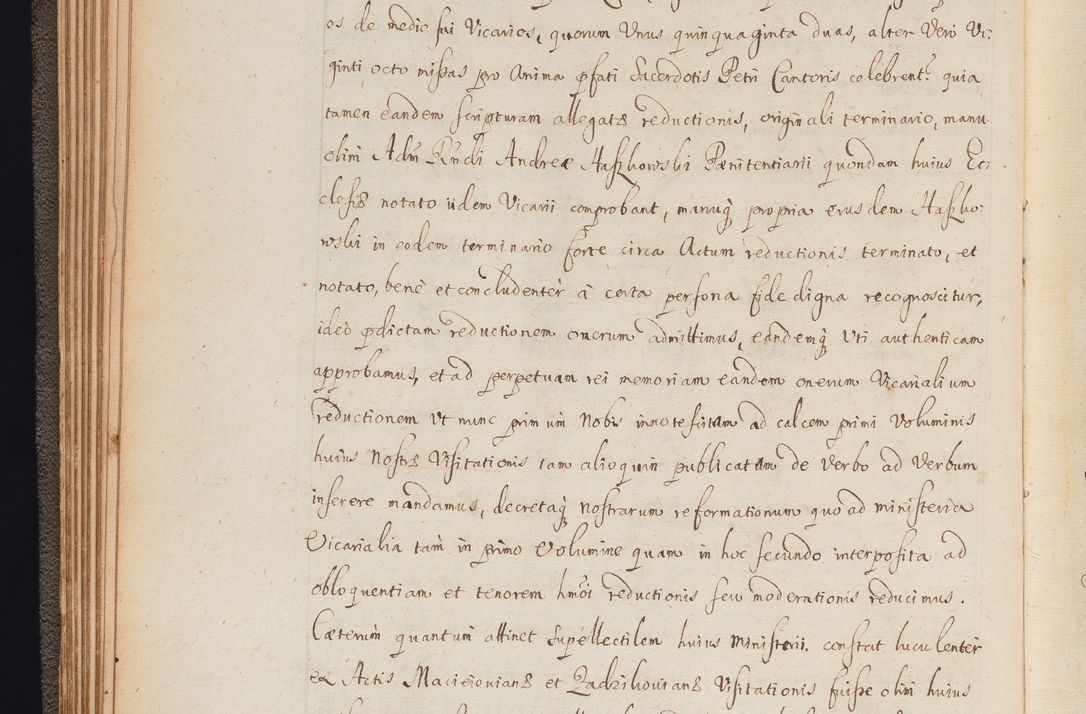 os de medio sui Vicarios, quorum Unus quinquaginta duas, alter Vero Vi:
ginti octo missas pro Anima pfati Sacerdotis Petri Cantoris celebrent: quia
tamen eandem scripturam allegatæ reductionis, originali terminario, manu
olim Adm Rndi Andreæ Haszkowski Pænitentiarii quondam huius Ec:
clesiæ notato iidem Vicarii comprobant, manuq; propria eiusdem Haszko:
wski in eodem terminario forte circa Actum reductionis terminato, et
notato, bene et concludenter à certa persona fide digna recognoscitur,
ideò pdictam reductionem onerum admittimus, eandemq; Uti authenticam
approbamus, et ad perpetuam rei memoriam eandem onerum Vicarialium
reductionem Ut nunc primum Nobis innotefactam ad calcem primi Voluminis
huius Nostræ Visitationis iam alioquin publicatum de Verbo ad Verbum
inserere mandamus, decretaq; Nostrarum reformationum quo ad ministeria
Vicarialia tam in primo Volumine quam in hoc secundo interposita ad
obloquentiam et tenorem hmoi reductionis seu moderationis reducimus.
Cæterum quantum attinet Supellectilem huius Ministerii, constat luculenter
ex Actis Macieiovianæ et Zadzikovianæ Visitationis fuisse olim huius